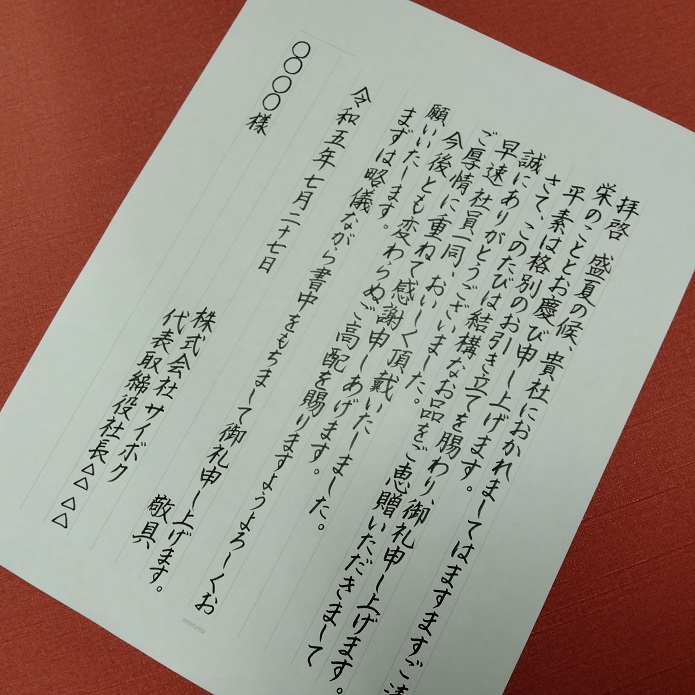 拝啓　盛夏の候、貴社におかれましてはますますご清
栄のこととお慶び申し上げます。
平素は格別のお引き立てを賜わり、御礼申し上げます。
さて、このたびは結構なお品をご恵贈いただきまして
誠にありがとうございました。
早速社員一同、おいしく頂戴いたしました。
ご厚情に重ねて感謝申しあげます。
今後とも変わらぬご高配を賜りますようよろしくお
願いいたします。
まずは略儀ながら書中をもちまして御礼申し上げます。
敬具
令和五年七月二十七日
株式会社サイボク
代表取締役社長△△△△
〇〇〇〇様
KOKUYO